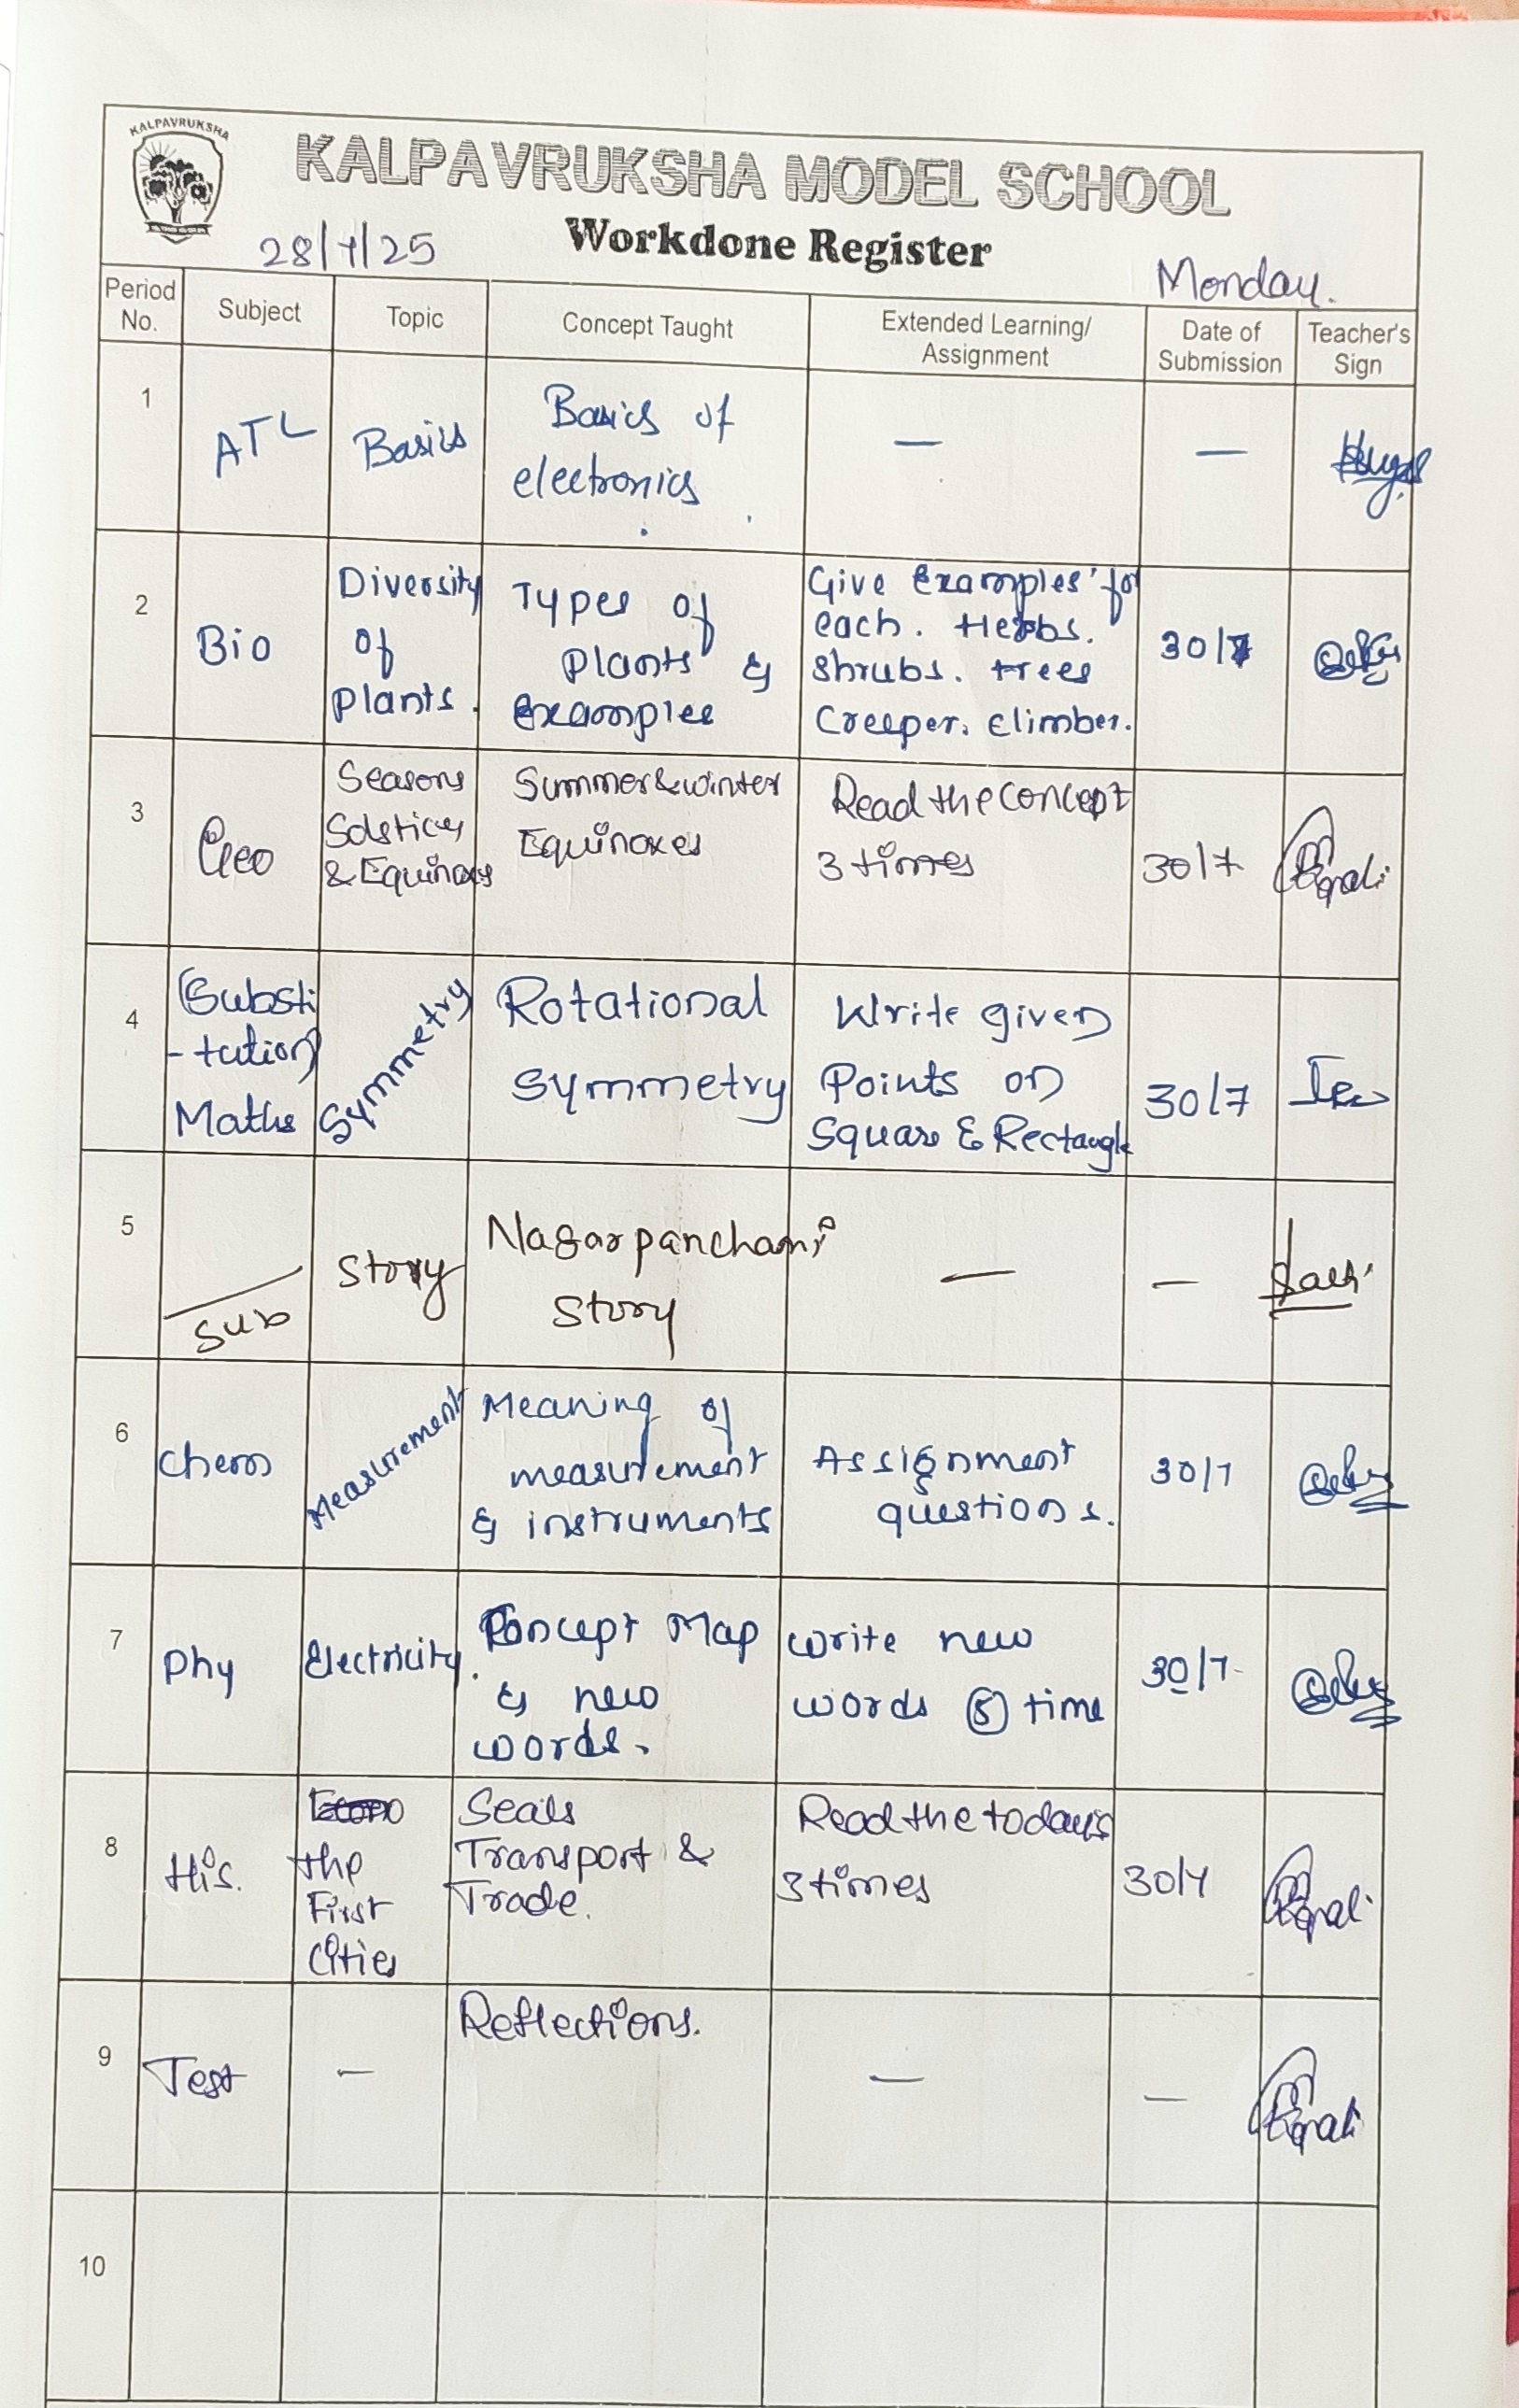 KALPAVRUKSHA
KALPAVRUKSHA MODEL SCHOOL
Workdone Register
28/7/25
Monday.
Period No.
Subject
Topic
Concept Taught
Extended Learning/
Assignment
Date of
Submission
Teacher's
Sign
1
ATL
Basics
Basics of
electronics
—
—
2
Bio
Diversity
of
plants.
Types of
plants &
Examples
Give Examples for
each. Herbs.
shrubs. trees
Creeper. climber.
30/7
3
Geo
Seasons
Solstices
& Equinoxes
Summer & winter
Equinoxes
Read the concept
3 times
30/7
4
(Substi
-tution)
Maths
Symmetry
Rotational
Symmetry
Write given
Points on
Square & Rectangle
30/7
5
Sub
Story
Nagarpanchami
Story
—
—
6
Chem
Measurement
Meaning of
measurement
& instruments
Assignment
questions.
30/7
7
Phy
Electricity.
Concept Map
& new
words.
Write new
words 5 time
30/7
8
His.
the
First
Cities
Seals
Transport &
Trade.
Read the todays
3 times
30/7
9
Test
—
Reflections.
—
—
10